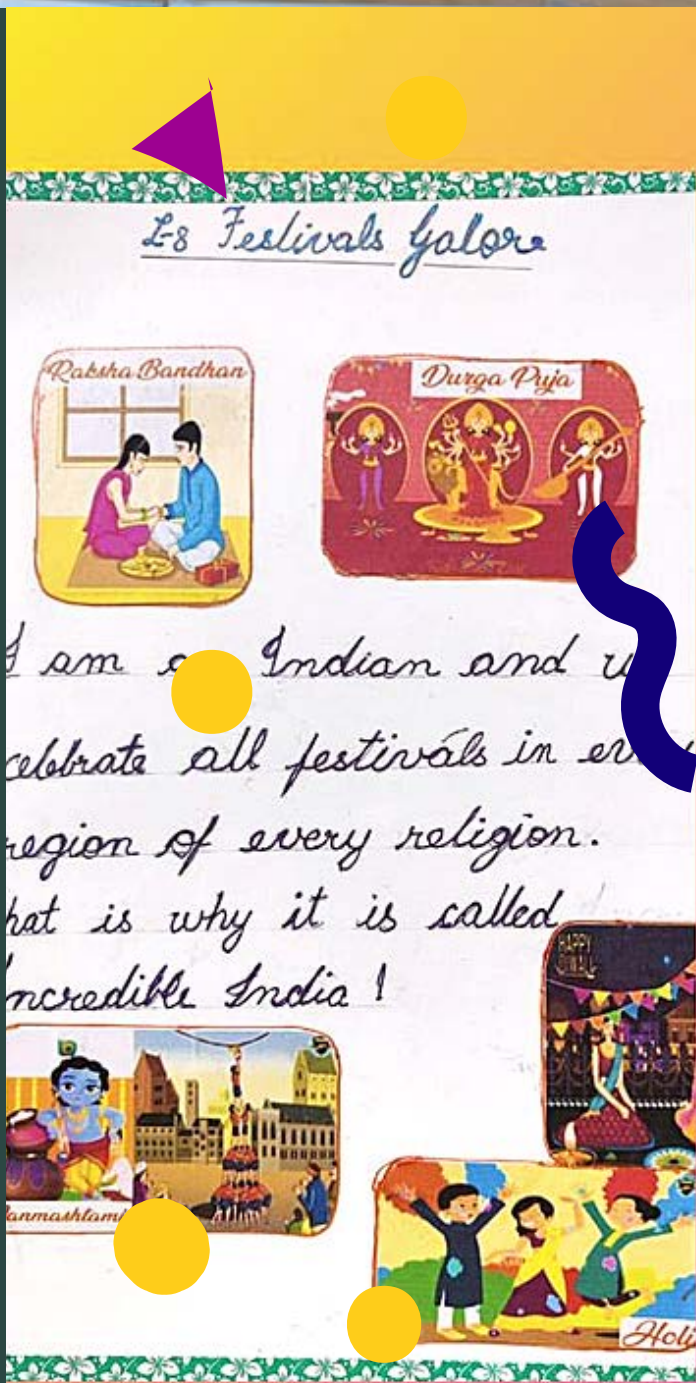 L-8 Festivals Galore
Raksha Bandhan
Durga Puja
I am Indian and
celebrate all festivals in
region of every religion.
hat is why it is called
Incredible India !
HAPPY
DIWALI
Janmashtami
Holi